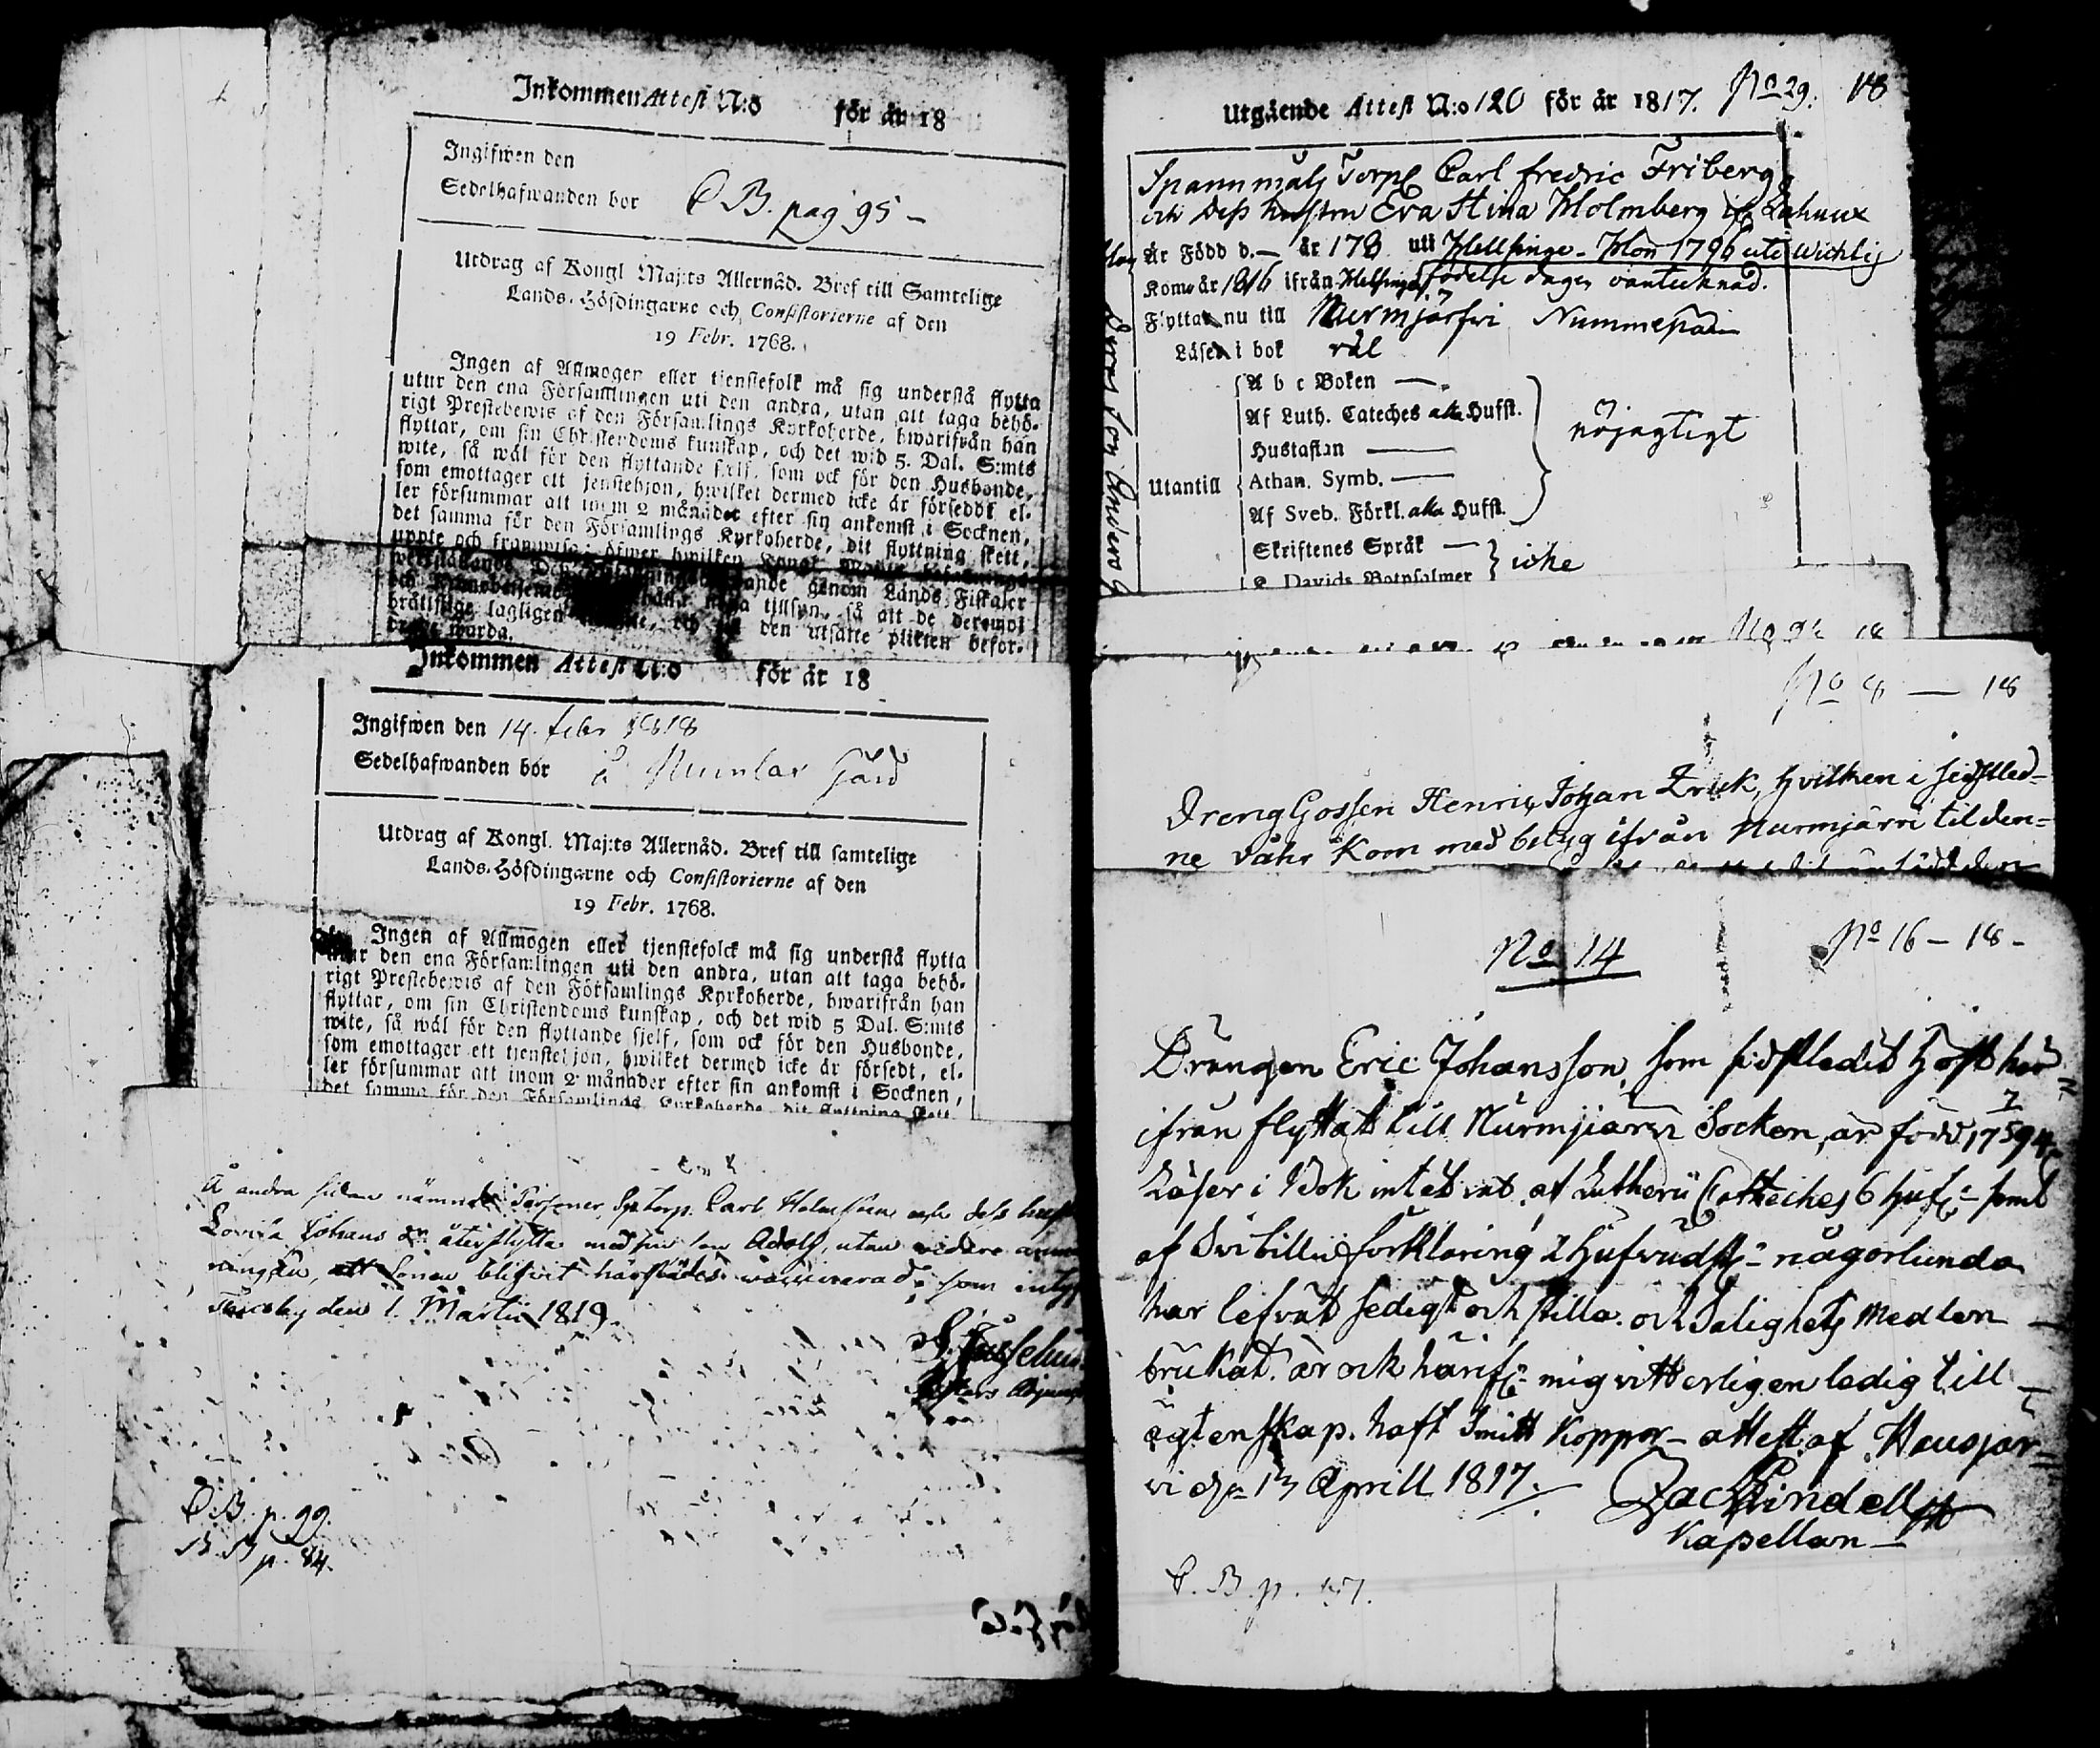 Inkommen Attest N:o för år 18
Ingifwen den
Sedelhafwanden bor C B. pag 95 -
Utdrag af Kongl Maj:ts Allernåd. Bref till Samtelige
Lands-Höfdingarne och Consistorierne af den
19 Febr. 1768.
Ingen af Allmogen eller tjenstefolk må sig understå flytta
utur den ena Församlingen uti den andra, utan att taga behö-
rigt Prestebewis af den Församlings Kyrkoherde, hwarifrån han
flyttar, om sin Christendoms kunskap, och det wid 5. Dal. S:mts
wite, så wäl för den flyttande sielf, som ock för den Husbonde,
som emottager ett tjenstehjon, hwilket dermed icke är försedt, el-
ler försummar att inom 2 månader efter sin ankomst i Socknen,
det samma för den Församlings Kyrkoherde, dit flyttning skett,
uppte och framwisa; öfwer hwilken Kongl.
genom Lands-Fiskaler
och tillsyn, så att de deremot
brållslige lagligen den utsatte plikten befor-
warda.
Inkommen Attest N:o för år 18
Ingifwen den 14. febr 1818
Sedelhafwanden bor å Numlax Gård
Utdrag af Kongl. Maj:ts Allernåd. Bref till samtelige
Lands-Höfdingarne och Consistorierne af den
19 Febr. 1768.
Ingen af Allmogen eller tjenstefolck må sig understå flytta
utur den ena Församlingen uti den andra, utan att taga behö-
rigt Prestebewis af den Församlings Kyrkoherde, hwarifrån han
flyttar, om sin Christendoms kunskap, och det wid 5 Dal. S:mts
wite, så wäl för den flyttande sjelf, som ock för den Husbonde,
som emottager ett tjenstehjon, hwilket dermed icke är försedt, el-
ler försummar att inom 2 månader efter sin ankomst i Socknen,
det samma för den Församlings Kyrkoherde, dit flyttning skett
Å andra sidan nämnde Personer, Sp torp. Carl Holmström och dess hust
Lovisa Johans dr återflytta med sin son Adolf, utan vidare anm
ning än, att Sonen blifvit härstädes vaccinerad; som intyg
den 1. Martii 1819.
C B. p. 99.
B B p. 84.
Utgående Attest N:o 120 för år 1817. No 29. 18
Spannmåls Torp Carl Fredric Friberg
och dess hustru Eva Stina Holmberg
Är Född d. — år 178 uti Helsinge - Hon 1796 uti Wichtis
Kom år 1816 ifrån Helsinge födelse dagen oantecknad.
Flyttar nu till Nurmijärfvi Nummepää
Läser i bok väl
Utantill
A b c Boken —
Af Luth. Cateches alla Hufst.
Hustaflan —
Athan. Symb. —
Af Sveb. Förkl. alla Hufst.
nöjagtigt
Skriftenes Språk —
Davids Botpsalmer
icke
Deras son Anders
No 8 — 18
Dreng Gossen Henric Johan Erick, hvilken i sidstled-
ne våhr Kom med betyg ifrån Nurmjärvi til den-
No 14
No 16 - 18 -
Drängen Eric Johansson, som sidstledit höst här
ifrån flyttat till Nurmjiärvi Socken, är född 1794
Läser i Bok intet rat af Lutherii Catteches 6 huf: samt
af Svibillii förklaring 2 Hufvudst: någorlunda
har lefvat sedigt och stilla. och Salighets Medlen
brukat. är ock härif: mig vitterligen ledig till
ägtenskap. haft Smitt Koppor - attest: af Hausjär-
vi d: 13 Aprill 1817.
Zach Lindell
Kapellan
C. B. p. 157.